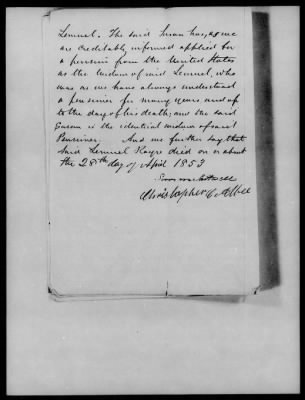 Lemuel. The said Susan has, as we
are creditably informed applied for
a pension from the United States
as the widow of said Lemuel, who
was as we have always understood
a pensioner for many years and up
to the day of his death; and the said
Susan is the identical widow of said
Pensioner. And we further say that
said Lemuel died on or about
the 28th day of April 1853
Christopher C. Abbee